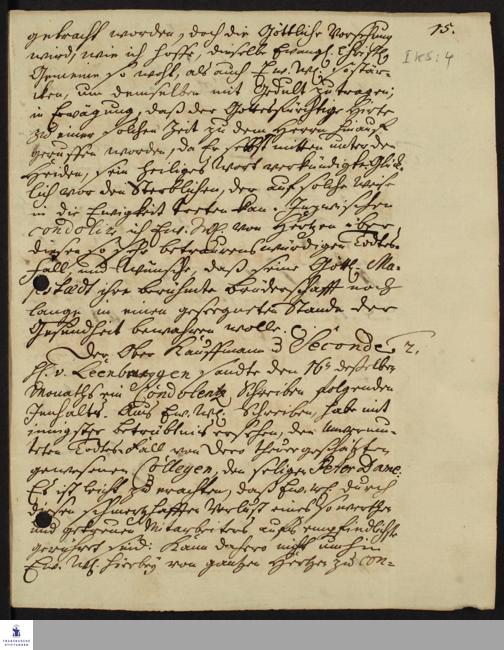 15.
I K 5 : 4
gebracht worden, doch die Göttliche Vorsehung
wird, wie ich hoffe, dieselbe Evangl. Christl.
Gemeine so wohl, als auch Ew. W. so stär-
ken, um demselben mit Gedult zu tragen;
in Erwägung, daß der Gottesfürchtige Hirte
zu einer solchen Zeit zu dem Herrn hinauf
geruffen worden, da Er selbst mitten unter den
Heiden, sein heiliges Wort verkündigte. Glück-
lich vor den Sterblichen, der auf solche Weise
in die Ewigkeit treten kan. Inzwischen
condolire ich Ew. W. von Hertzen über
diesen so sehr betraurenswürdigen Todes-
fall, und wünsche, daß seine Göttl. Ma-
jestædt ihre berühmte Brüderschafft noch
lange in einen gesegneten Stande der
Gesundheit bewahren wolle.
Der Ober Kauffmann Seconde 2.
H. v. Leenbruggen sandte den 16 desselben
Monaths ein Condolentz Schreiben folgenden
Innhalts. Aus Ew. W. Schreiben, habe mit
innigster betrübnis ersehen, den unvermu-
theten Todes-Fall von Dero theuergeschätzten
gewesenen Collegen, den seligen Peter Dame.
Es ist leicht zu erachten, daß Ew. W. durch
diesen schmertzhafften Verlust eines so werthen
und getreuen Mitarbeiters aufs empfindlichste
gerühret sind. Kann dahero nicht umhin
Ew. W. hierbey von gantzen Hertzen zu con-
FRANCKESCHE
STIFTUNGEN